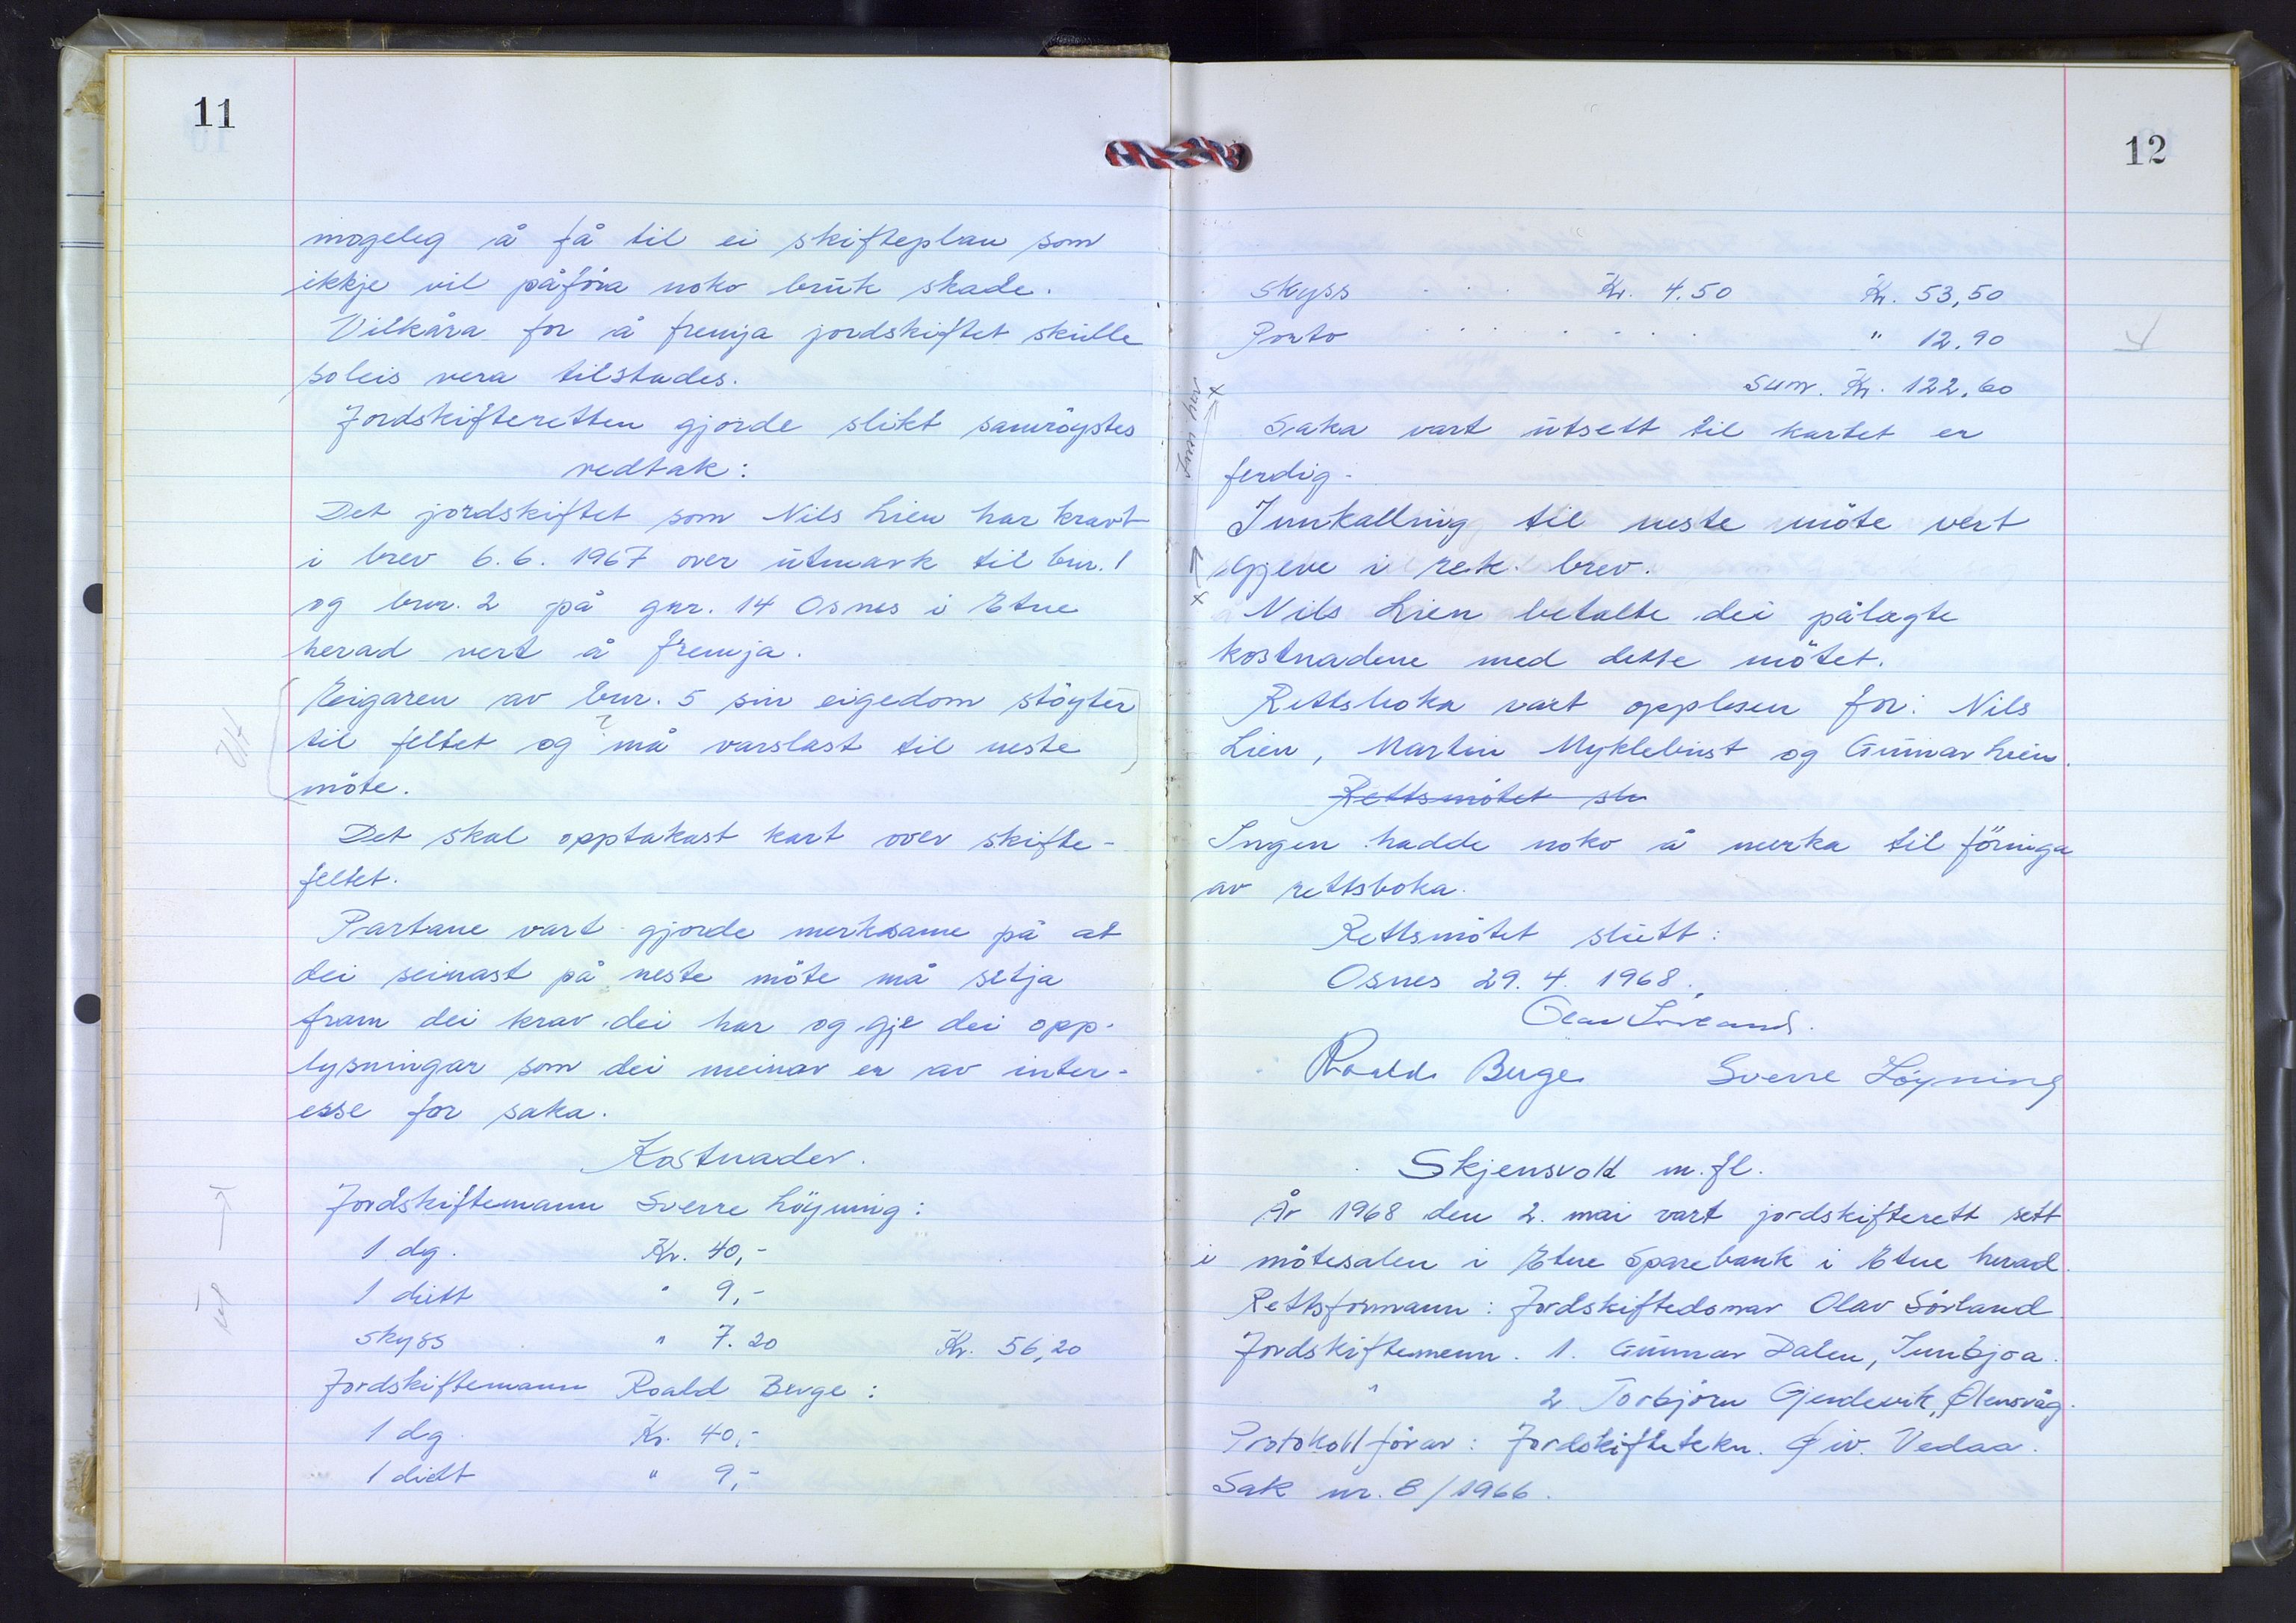 11
mogeleg å få til ei skifteplan som
ikkje vil påföra noko bruk skade.
Vilkåra for å fremja jordskiftet skulle
soleis vera tilstades.
Jordskifteretten gjorde slikt samröystes
vedtak:
Det jordskiftet som Nils Lien har kravt
i brev 6.6. 1967 over utmark til bnr. 1
og bnr. 2 på gnr. 14 Osnes i Etne
herad vert å fremja.
Eigaren av bnr. 5 sin eigedom stöyter
til feltet og må varslast til neste
möte.
Det skal opptakast kart over skifte-
feltet.
Partane vart gjorde merksame på at
dei seinast på neste möte må setja
fram dei krav dei har og gje dei opp-
lysningar som dei meinar er av inter-
esse for saka.
Kostnader.
Jordskiftemann Sverre Löyning:
1 dg. Kr. 40,-
1 diett " 9,-
skyss " 7.20 Kr. 56,20
Jordskiftemann Roald Berge:
1 dg Kr. 40,-
1 diett " 9,-
12
Skyss . . . Kr. 4.50 Kr. 53,50
Porto . . . . . . " 12.90
Sum. Kr. 122.60
Saka vart utsett til kartet er
ferdig.
Innkalling til neste möte vert
gjeve i rek. brev.
Nils Lien betalte dei pålagte
kostnadene med dette mötet.
Rettsboka vart opplesen for: Nils
Lien, Martin Myklebust og Gunnar Lien.
Rettsmötet slu
Ingen hadde noko å merka til föringa
av rettsboka.
Rettsmötet slutt:
Osnes 29. 4. 1968.
Olav Sörland.
Roald Berge Sverre Löyning
Skjensvold m.fl.
År 1968 den 2. mai vart jordskifterett sett
i mötesalen i Etne Sparebank i Etne herad.
Rettsformann: Jordskiftedomar Olav Sörland.
Jordskiftemenn. 1. Gunnar Dalen, Innbjoa.
" 2 Torbjörn Gjerdevik, Ølensvåg.
Protokollförar: Jordskiftetekn. Eiv. Vedaa.
Sak nr. 8/1966.